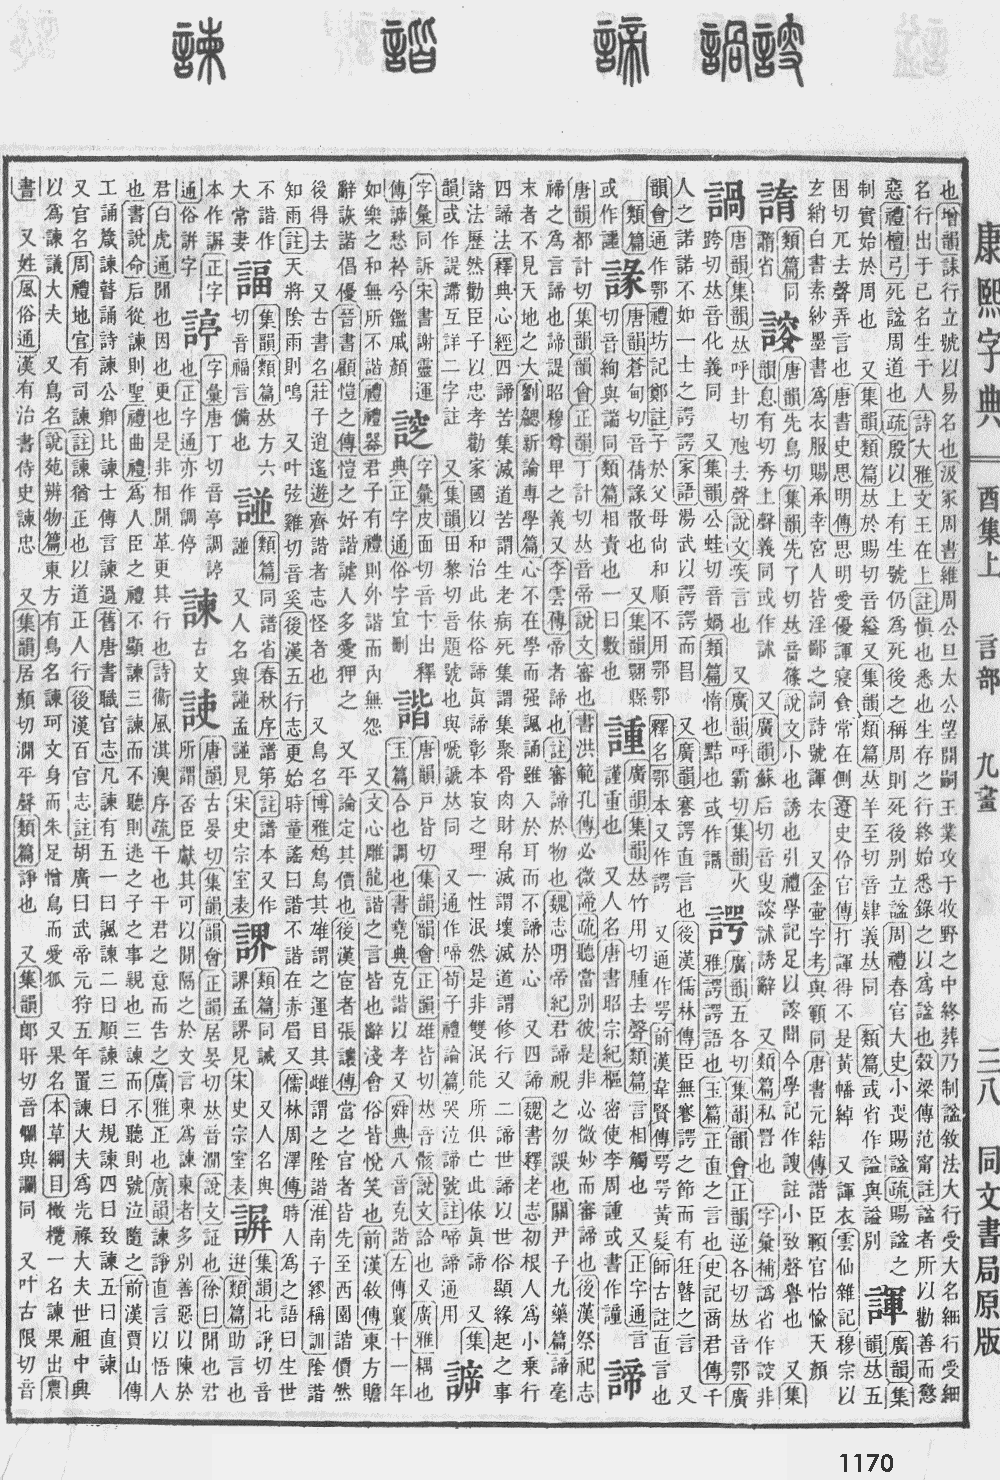 康熙字典 酉集上 言部 九畫 三八 同文書局原版
也增韻誄行立號以易名也汲冢周書維周公旦太公望開嗣王業攻于牧野之中終葬乃制諡敘法大行受大名細行受細
名行出于己名生于人詩大雅文王在上註愼也悉也生存之行終始悉錄之以爲諡也穀梁傳范甯註諡者所以勸善而懲
惡禮檀弓死諡周道也疏殷以上有生號仍爲死後之稱周則死後別立諡周禮春官大史小喪賜諡疏賜諡之
制實始於周也 又集韻類篇𠀤於賜切音縊又集韻類篇𠀤羊至切音肄義𠀤同 類篇或省作謚與諡別
諢 廣韻集韻𠀤五
困切兀去聲弄言也唐書史思明傳思明愛優諢寢食常在側遼史伶官傳打諢得不是黃幡綽 又諢衣雲仙雜記穆宗以
玄綃白書素紗墨書爲衣服賜承幸宮人皆淫鄙之詞詩號諢衣 又金壷字考與顐同唐書元結傳諧臣顐官怡愉天顏
類篇同
謏 唐韻先鳥切集韻先了切𠀤音篠說文小也誘也引禮學記足以謏聞今學記作謏註小致聲譽也 又集
韻息有切秀上聲義同或作訹 又廣韻蘇后切音叟謏訹誘辭 又類篇私詈也 字彙補譌省作 非
諣 唐韻集韻𠀤呼卦切 去聲說文疾言也 又廣韻呼霸切集韻火
跨切𠀤音化義同 又集韻公蛙切音媧類篇惰也黠也或作
諤 廣韻五各切集韻韻會正韻逆各切𠀤音鄂廣
雅諤諤語也玉篇正直之言也史記商君傳千
人之諾諾不如一士之諤諤家語湯武以諤諤而昌 又廣韻謇諤直言也後漢儒林傳臣無謇諤之節而有狂瞽之言 又
韻會通作鄂禮坊記鄭註子於父母尙和順不用鄂鄂釋名鄂本又作諤 又通作咢前漢韋賢傳咢咢黃髮師古註直言也
類篇或作謹
唐韻蒼甸切音倩 散也 又集韻翾縣
切音絢與讂同類篇相責也一曰數也
諥 廣韻集韻𠀤竹用切腫去聲類篇言相觸也 又正字通言
謹重也 又人名唐書昭宗紀樞密使李周諥或書作
諦
唐韻都計切集韻韻會正韻丁計切𠀤音帝說文審也書洪範孔傳必微諦疏聽當別彼是非必微妙而審諦也後漢祭祀志
禘之爲言諦也諦諟昭穆尊𤰞之義又李雲傳帝者諦也註審諦於物也魏志明帝紀君諦視之勿誤也關尹子九藥篇諦毫
末者不見天地之大劉勰新論專學篇心不在學而强諷誦雖入於耳而不諦於心 又四諦魏書釋老志初根人爲小乗行
四諦法釋典心經四諦苦集滅道苦謂生老病死集謂集聚骨肉財帛滅謂壞滅道謂修行又二諦世諦以世俗顯緣起之事
諸法歷然勸臣子以忠孝勸家國以和治此依俗諦眞諦彰本寂之理一性泯然是非雙泯能所俱亡此依眞諦 又集
韻或作諟 互詳二字註 又集韻田黎切音題號也與嗁謕𠀤同 又通作啼荀子禮論篇哭泣諦號註啼諦通用
字彙同訴宋書謝靈運
傳 愁衿兮鑑戚顏
字彙皮面切音卞出釋
典正字通俗字宜刪
諧 唐韻戸皆切集韻韻會正韻雄皆切𠀤音骸說文詥也又廣雅耦也
玉篇合也調也書堯典克諧以孝又舜典八音克諧左傳襄十一年
如樂之和無所不諧禮禮器君子有禮則外諧而內無怨 又文心雕龍諧之言皆也辭淺會俗皆悅笑也前漢敘傳東方贍
辭詼諧倡優晉書顧愷之傳愷之好諧謔人多愛狎之 又平論定其價也後漢宦者張讓傳當之官者皆先至西園諧價然
後得去 又古書名莊子逍遙遊齊諧者志怪者也 又鳥名博雅鴆鳥其雄謂之運目其雌謂之陰諧淮南子繆稱訓陰諧
知雨雨註天將陰雨則鳴 又叶弦雞切音奚後漢五行志更始時童謠曰諧不諧在赤眉又儒林周澤傳時人爲之語曰生世
不諧作大常妻
諨 集韻類篇𠀤方六
切音福言備也
諩 類篇同譜省春秋序譜第註譜本又作
諩 又人名與諩孟諩見宋史宗室表
類篇同誡 又人名與
見宋史宗室表
集韻北諍切音
迸類篇助言也
本作 正字
通俗誁字
諪 字彙唐丁切音亭調諪
也正字通亦作調停
諫 古文
唐韻古晏切集韻韻會正韻居晏切𠀤音澗說文証也徐曰閒也君
所謂否臣獻其可以閒隔之於文言柬爲諫柬者多別善惡以陳於
君白虎通閒也因也更也是非相閒革更其行也詩衞風淇澳序疏干也干君之意而告之廣雅正也廣韻諫諍直言以悟人
也書說命后從諫則聖禮曲禮爲人臣之禮不顯諫三諫而不聽則逃之子之事親也三諫而不聽則號泣隨之前漢賈山傳
工誦箴諫瞽誦詩諫公卿比諫士傳言諫過舊唐書職官志凡諫有五一曰諷諫二曰順諫三曰規諫四曰致諫五曰直諫
又官名周禮地官有司諫註諫猶正也以道正人行後漢百官志註胡廣曰武帝元狩五年置諫大夫爲光祿大夫世祖中興
以爲諫議大夫 又鳥名說苑辨物篇東方有鳥名諫珂文身而朱足憎鳥而愛狐 又果名本草綱目橄欖一名諫果出農
書 又姓風俗通漢有治書侍史諫忠 又集韻居顏切澗平聲類篇諍也 又集韻郎旰切音爛與讕同 又叶古限切音
1170